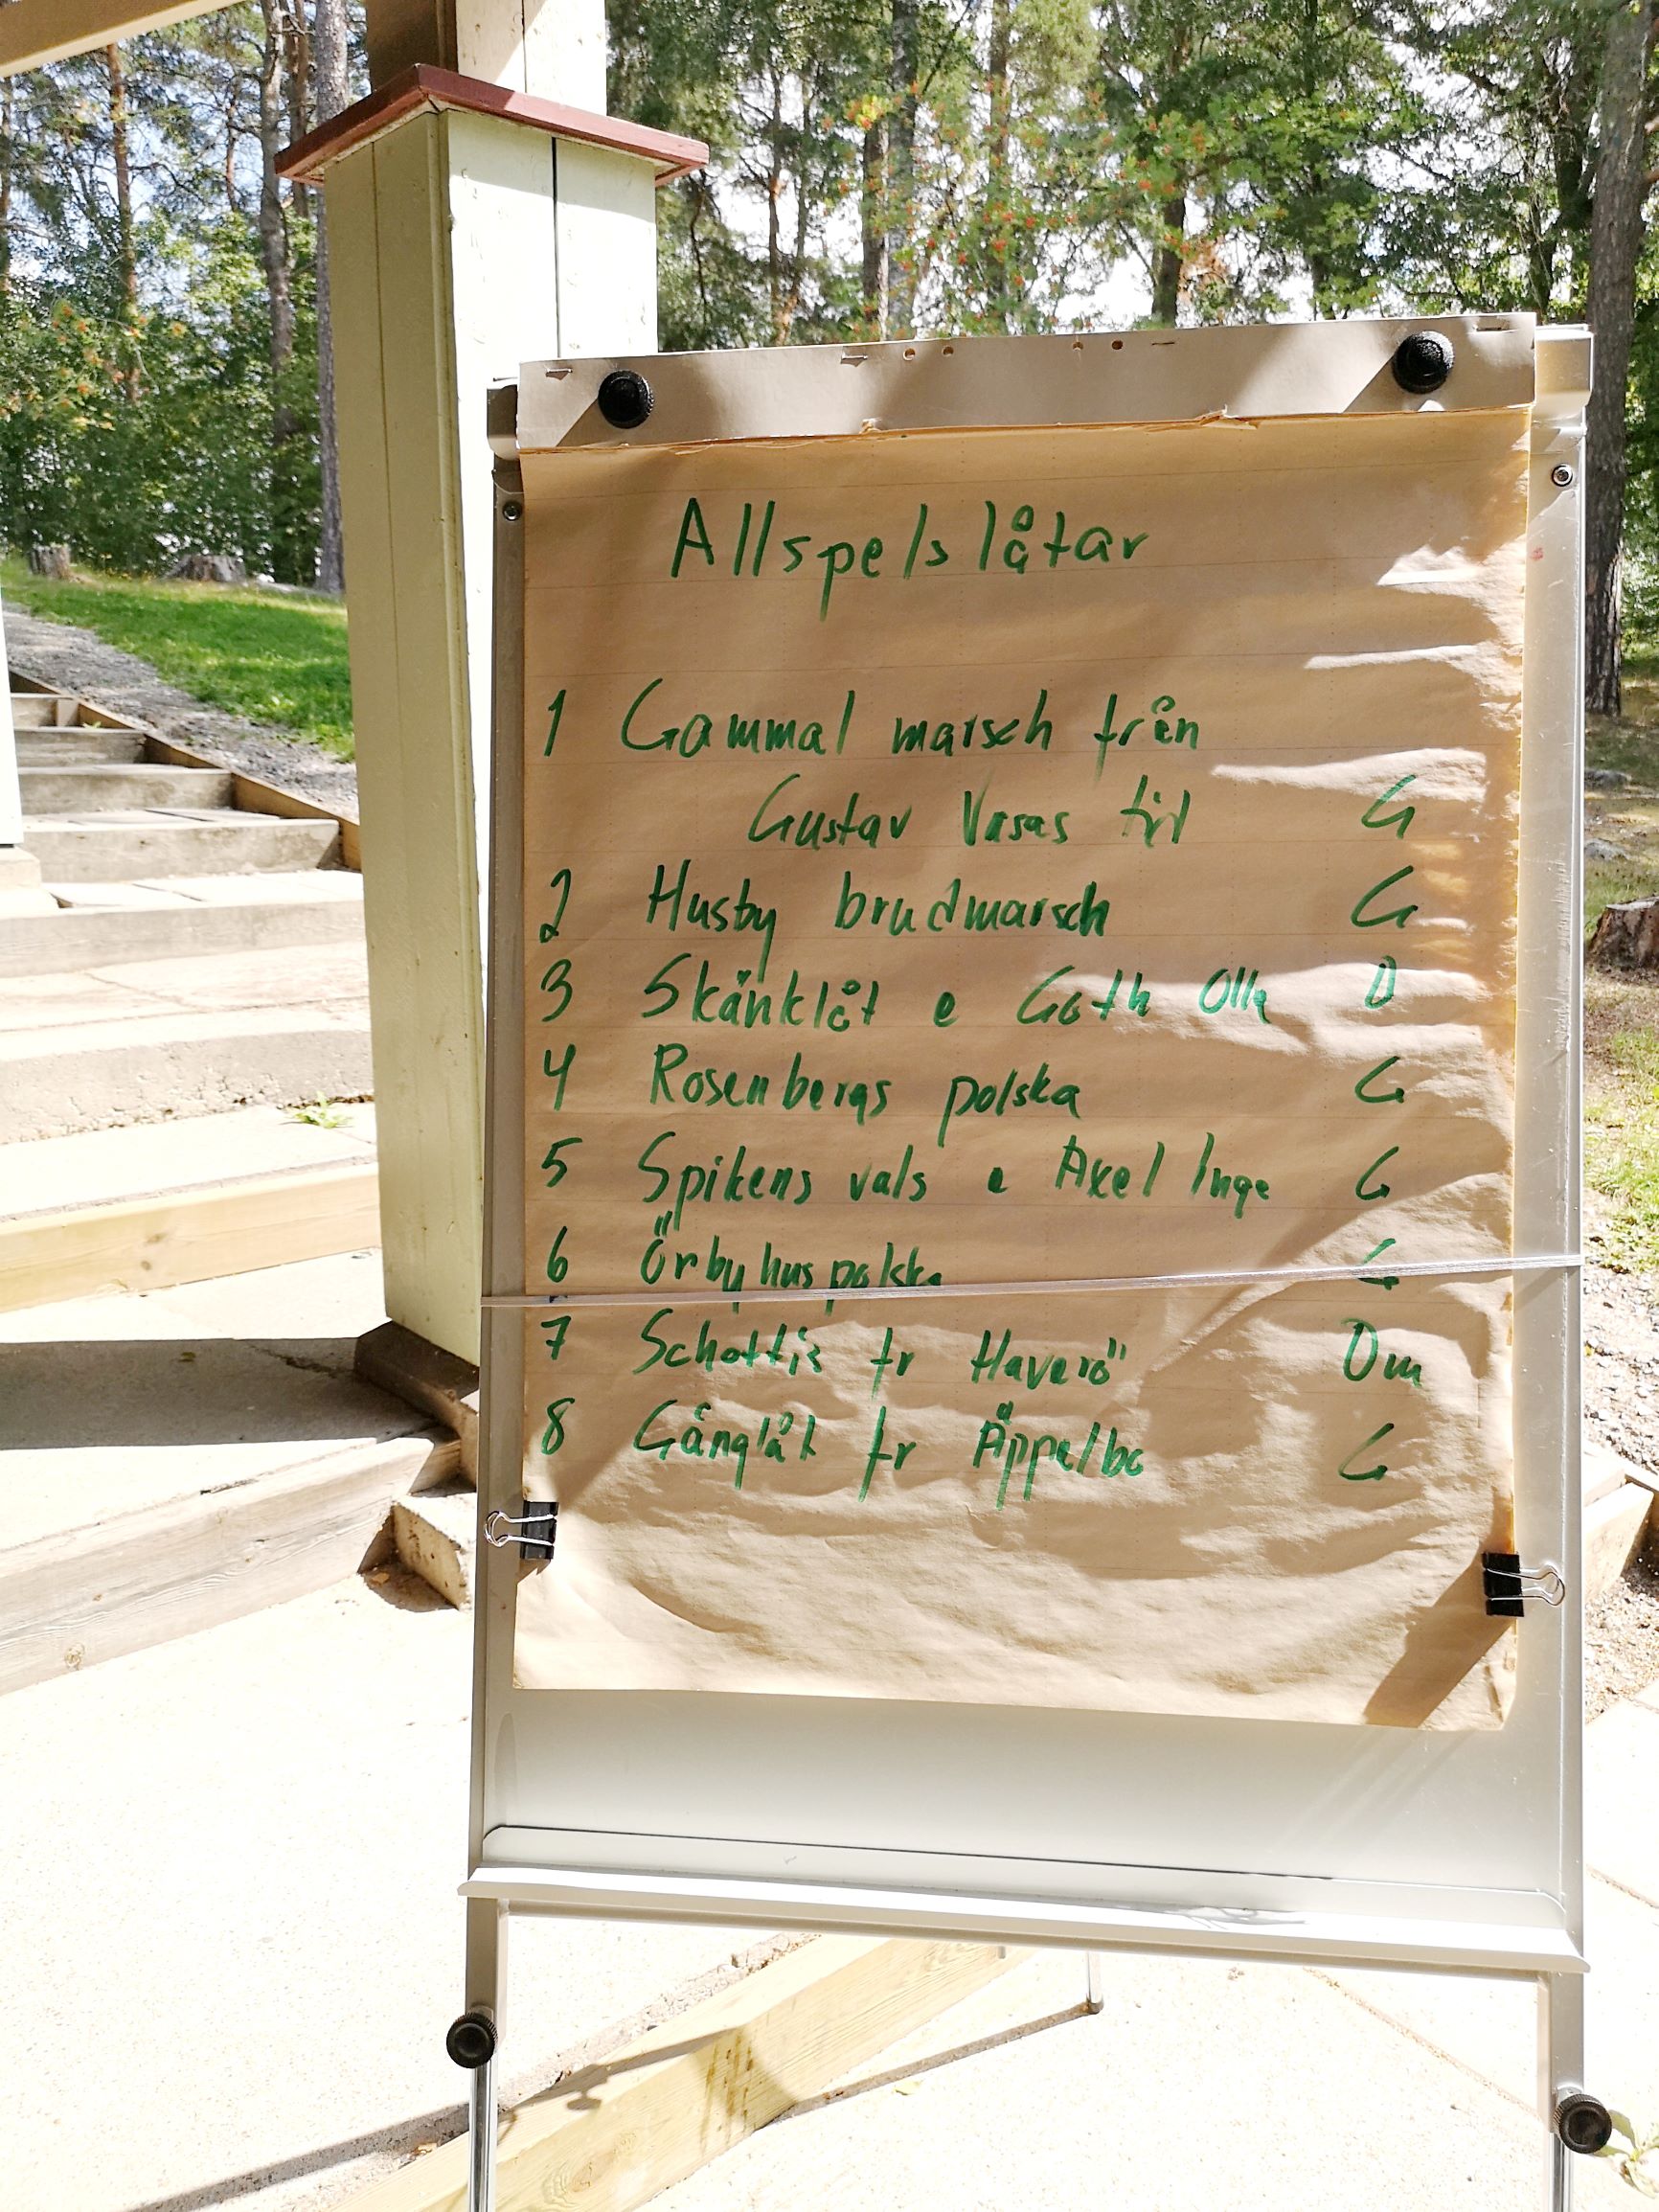 Allspelslåtar
1 Gammal marsch från
Gustav Vasas tid G
2 Husby brudmarsch G
3 Skänklåt e Goth Olle D
4 Rosenbergs polska G
5 Spikens vals e Axel Inge G
6 Örbyhuspolska G
7 Schottis fr Haverö Dm
8 Gånglåt fr Äppelbo G